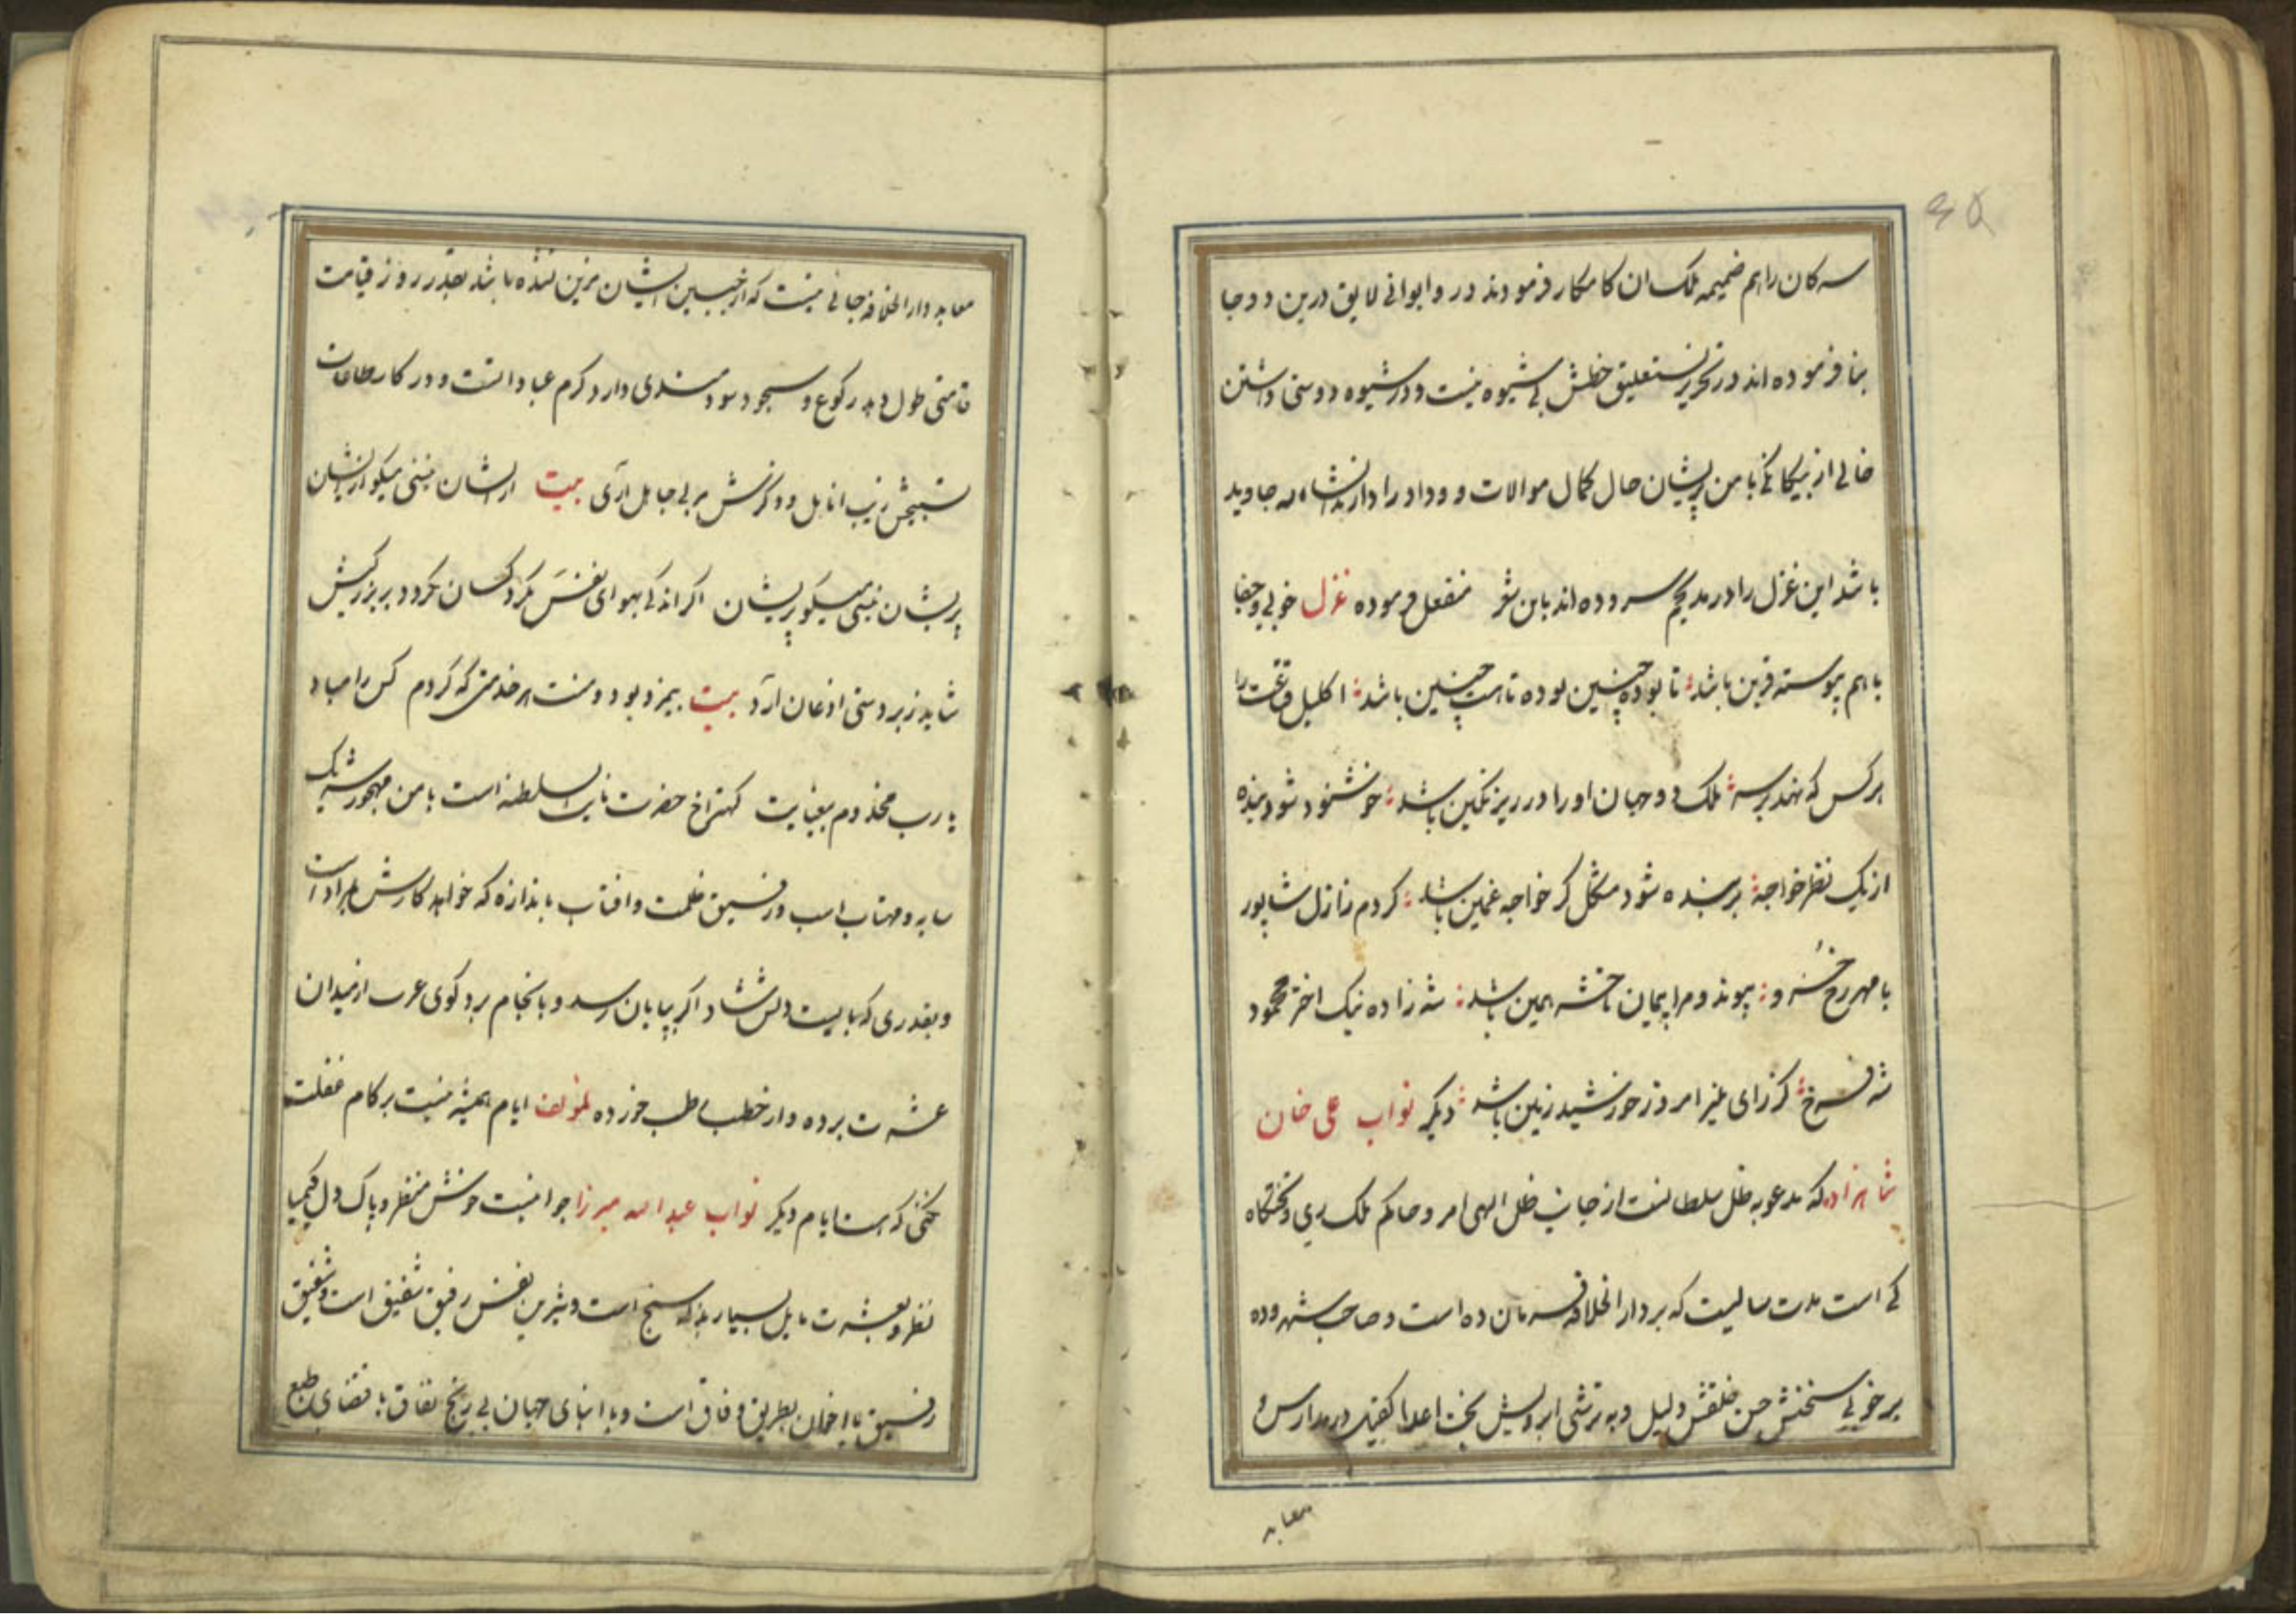 ۴۵
سرکان را هم ضمیمه ملک ان کامکار فرمودند در و ایوانی لایق درین دو جا
بنا فرموده اند در تحریر نستعلیق خطش بی شیوه نیست و در شیوه دوستی داشتن
خالی از بیکانکی با من پریشان حال کمال موالات و وداد را دارند جاوید
باشد این غزل را در مدیحم سروده اند باین منفعل فرموده غزل خوبی و جفا
با هم پیوسته قرین باشد تا بوده چنین بوده تا هست چنین باشد اکلیل را
هر کس که نهد بر سر ملک دو جهان او را در زیر نکین باشد خوشنود شود بنده
از یک نظر خواجه بر بنده شود مشکل کر خواجه غمین باشد کردم ز ازل شاپور
با مهر رخ خسرو پیوند و مرا پیمان تا حشر همین باشد شه زاده نیک اختر محمود
شه فرخ کز رای منیر امروز خورشید زمین باشد دیکر نواب علی خان
شاهزاده که مدعو به ظل سلطانست از جانب ظل الهی امر و حاکم ملک ری و تختکاه
کی است مدت سالیست که بر دار الخلافه فرمان ده است و صاحب شهر و ده
بر خوبی سخنش حسن خلقش دلیل و به ترشی ابرویش بخت اعدا در مدارس و
معابد
معابد دار الخلافه جائی نیست که از جبین ایشان مزین نشده باشد بقدر روز قیامت
قامتی طول دهد رکوع و سجود سود دارد کرم عباد است و در کار طاعات
تسبیحش زیب انامل و ذکرش بیت از ایشان نیستی میکو از ایشان
پریشان نیستی میکو پریشان اکر اندکی بهوای نفس کرد کسان نکردد بر بزرکیش
شاید زبردستی اذعان ارد بیت بیمزد بود و منت هر خدمتی که کردم کس را مباد
یا رب مخدوم بیعنایت کهتر اخ حضرت نایب السلطنه است با من مهجور شریک
سایه و مهتاب است و رفیق ظلمت و افتاب باندازه که خواهد کارش بمراد است
و بقدری که بایست دلش شاد اکر بپایان رسد و بانجام برد کوی عرب از میدان
عشرت برده و از خطب طب خورده لمؤلفه ایام همیشه نیست بر کام غفلت
نکنی که هست ایام دیکر نواب عبدالله میرزا جوانیست خوش منظر و پاک دل کیمیا
نظر و بعشرت مایل بسیار بذله سنج است و شیرین نفس رفیق شفیق است و شفیق
رفیق با اخوان بطریق وفاق است و با ابنای جهان بی رنج نفاق باقتضای طبع